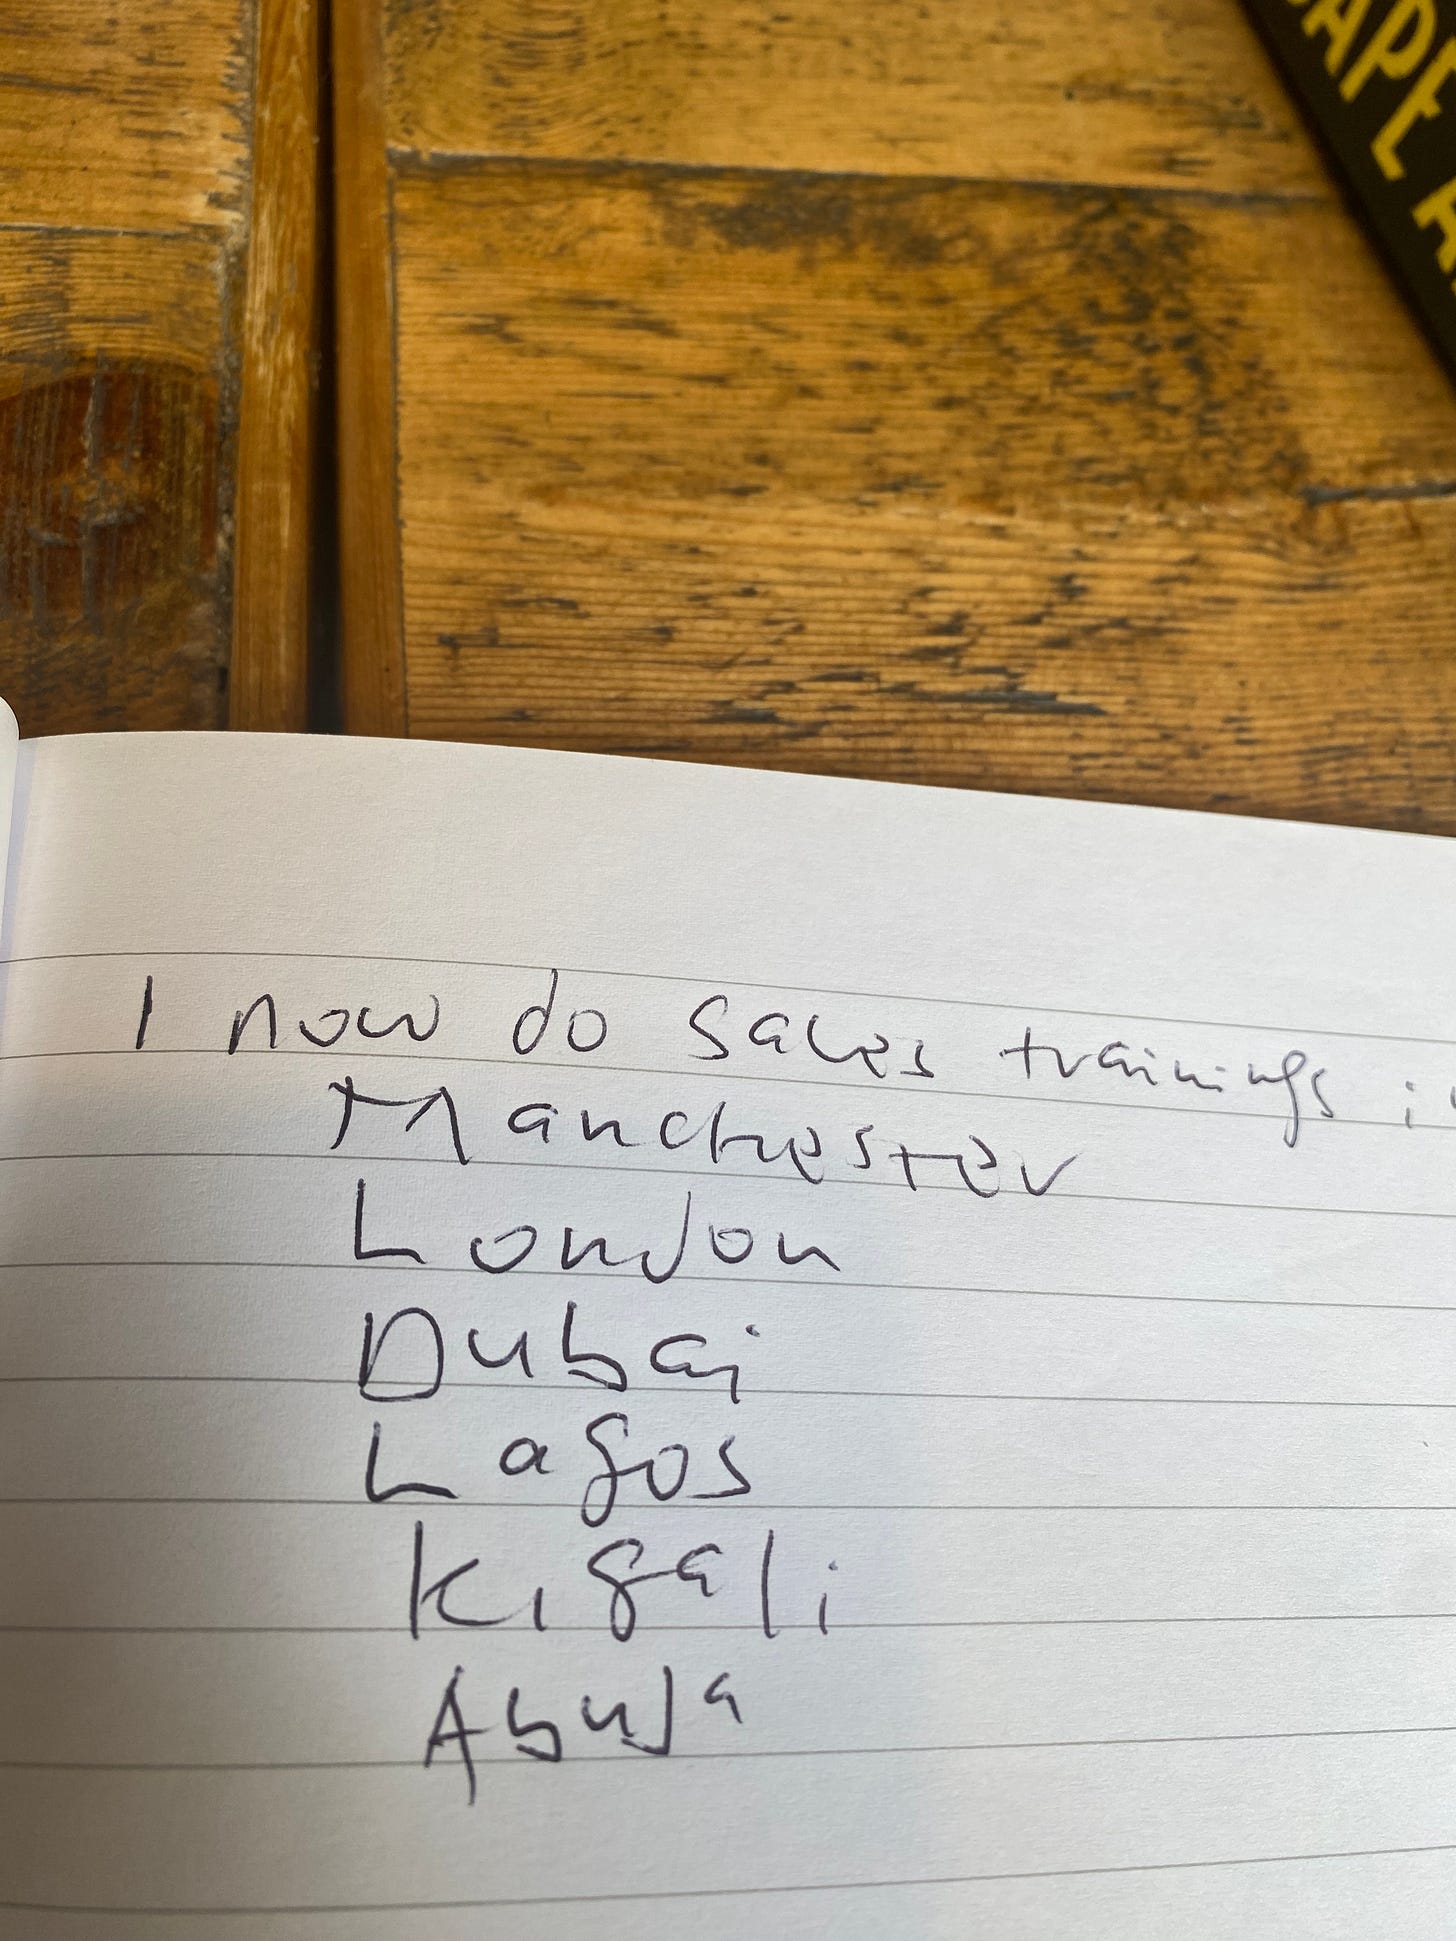 CAPE
I now do sales trainings
Manchester
London
Dubai
Lagos
Kigali
Abuja